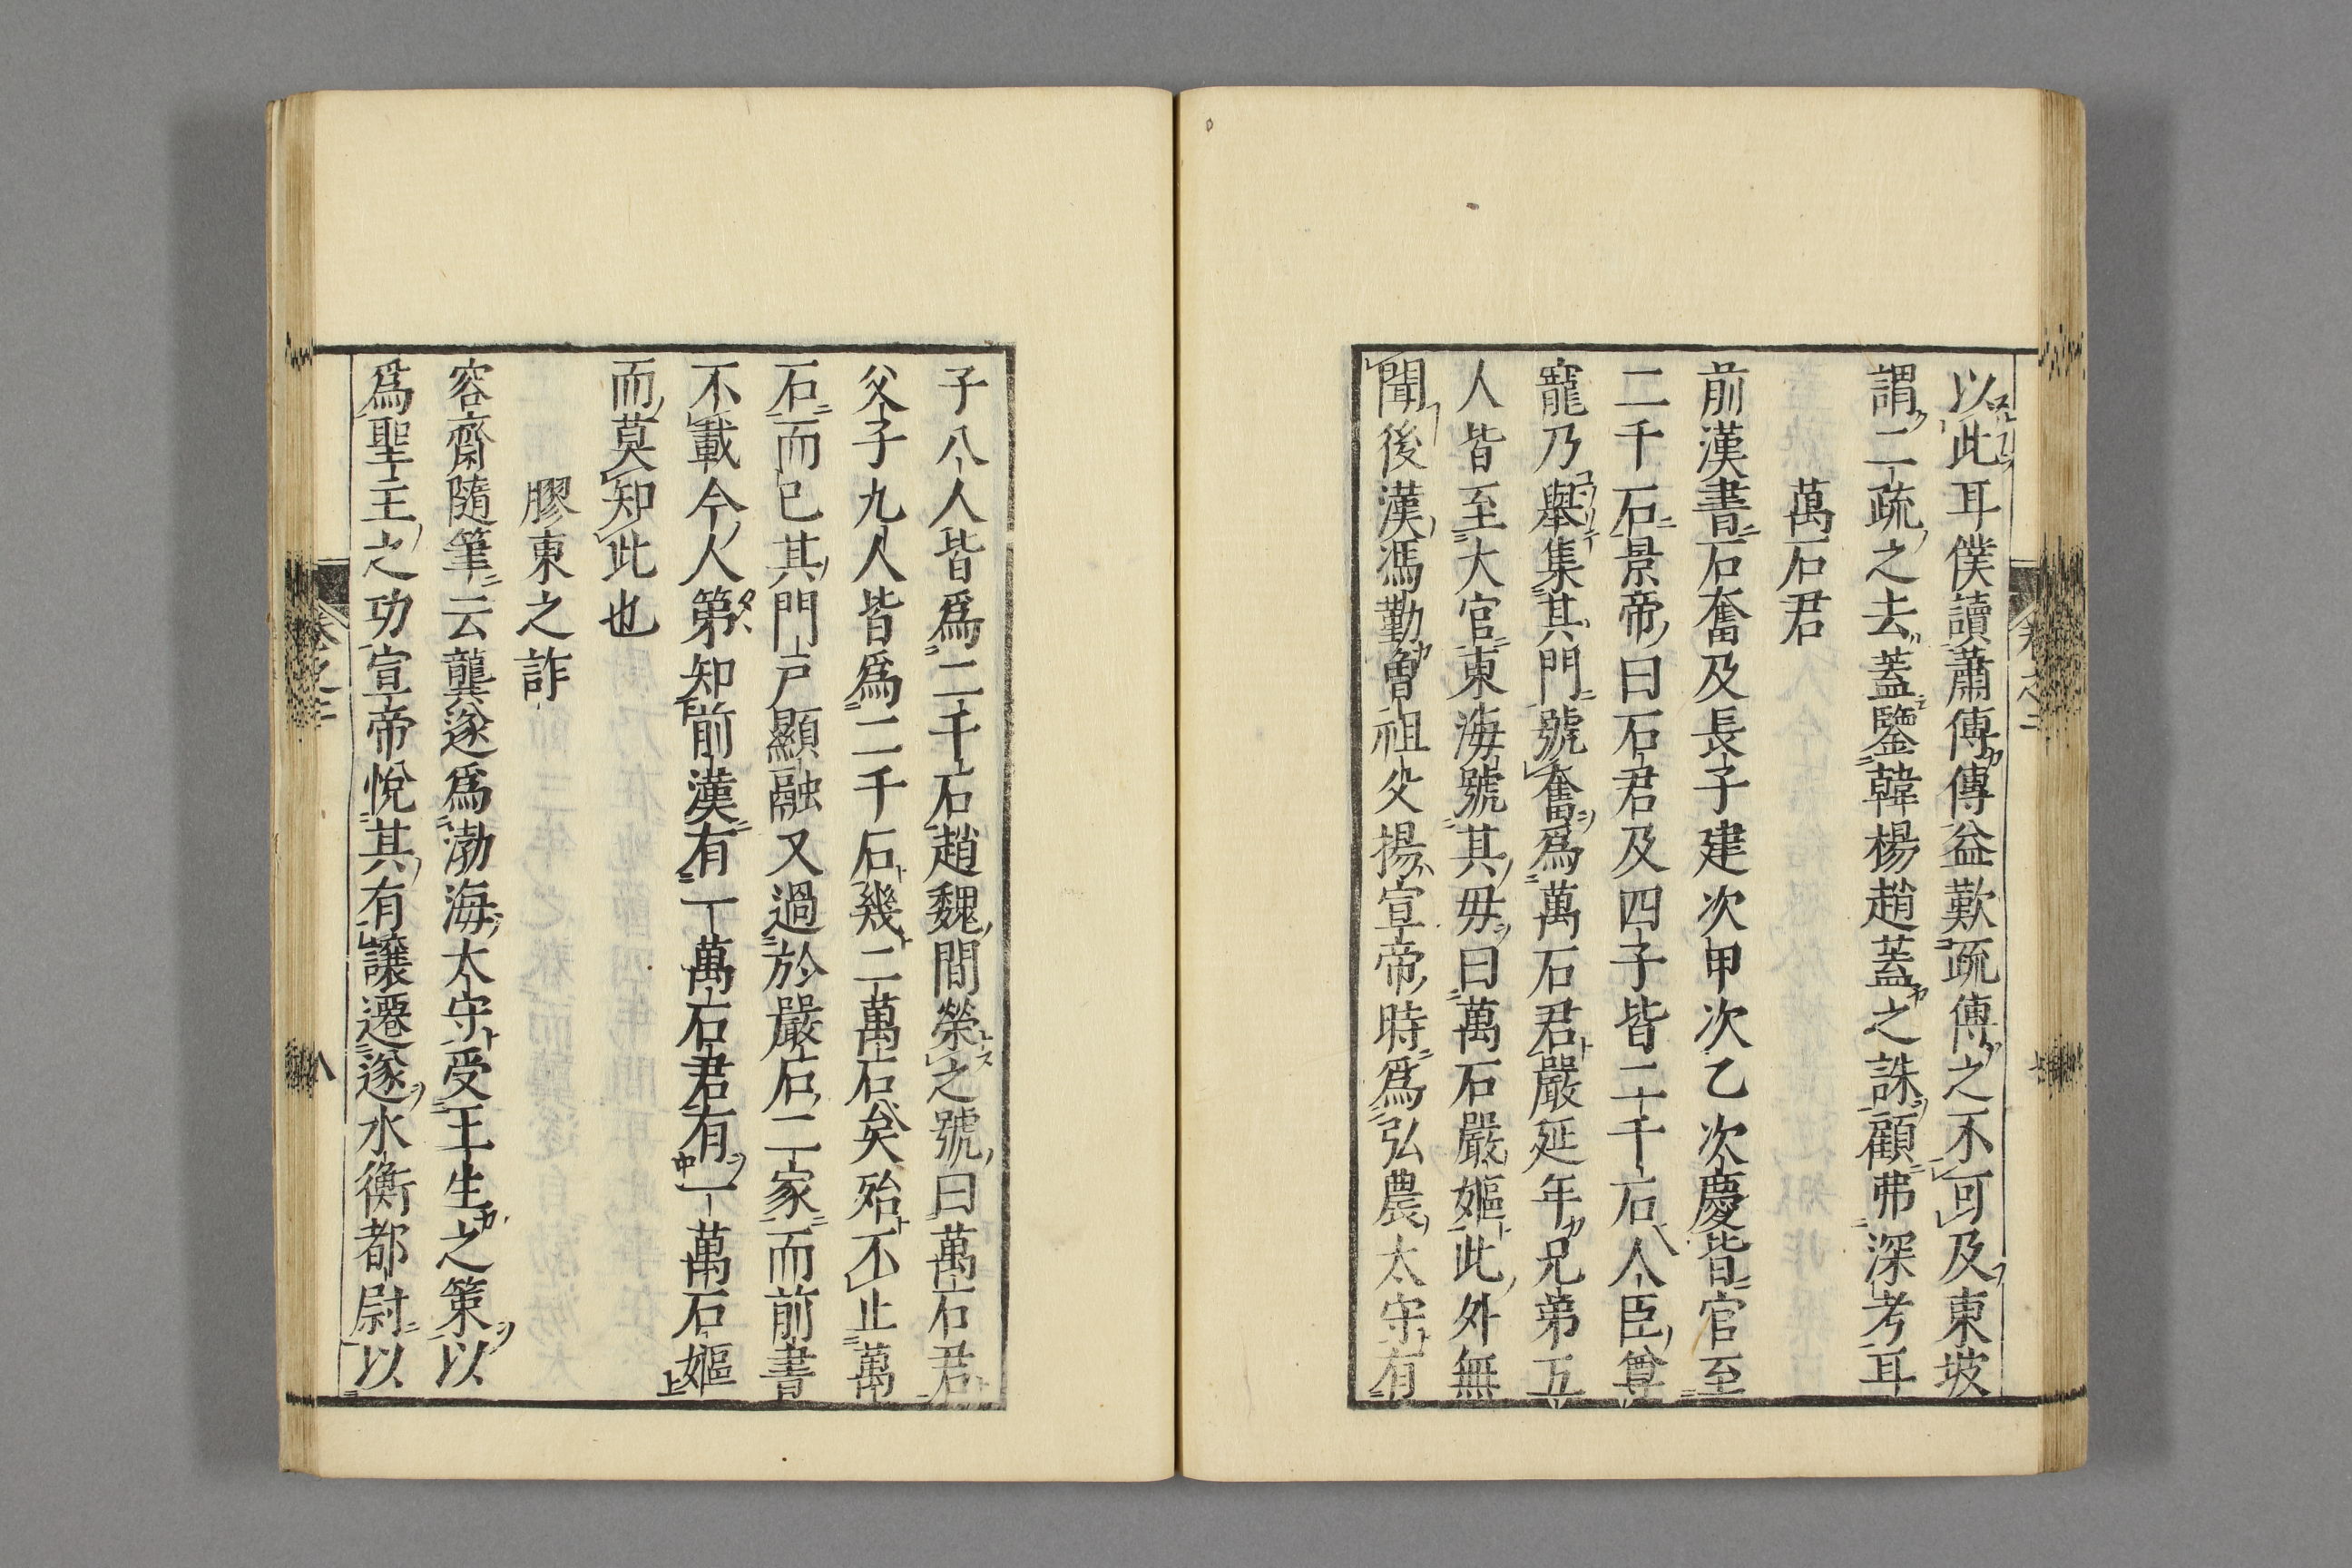 以此耳僕讀蕭傅傳益歎疏傅之不可及東坡
謂二疏之去蓋鑒韓楊趙蓋之誅顧弗深考耳
萬石君
前漢書石奮及長子建次甲次乙次慶皆官至
二千石景帝曰石君及四子皆二千石人臣尊
寵乃舉集其門號奮爲萬石君嚴延年兄弟五
人皆至大官東海號其毋曰萬石嚴嫗此外無
聞後漢馮勤曾祖父揚宣帝時爲弘農太守有
子八人皆爲二千石趙魏間榮之號曰萬石君
父子九人皆爲二千石幾二萬石矣殆不止萬
石而已其門戶顯融又過於嚴石二家而前書
不載今人第知前漢有一萬石君有一萬石嫗
而莫知此也
膠東之詐
容齋隨筆云龔遂爲渤海太守受王生之策以
爲聖主之功宣帝悅其有讓遷遂水衡都尉以
卷之三
八